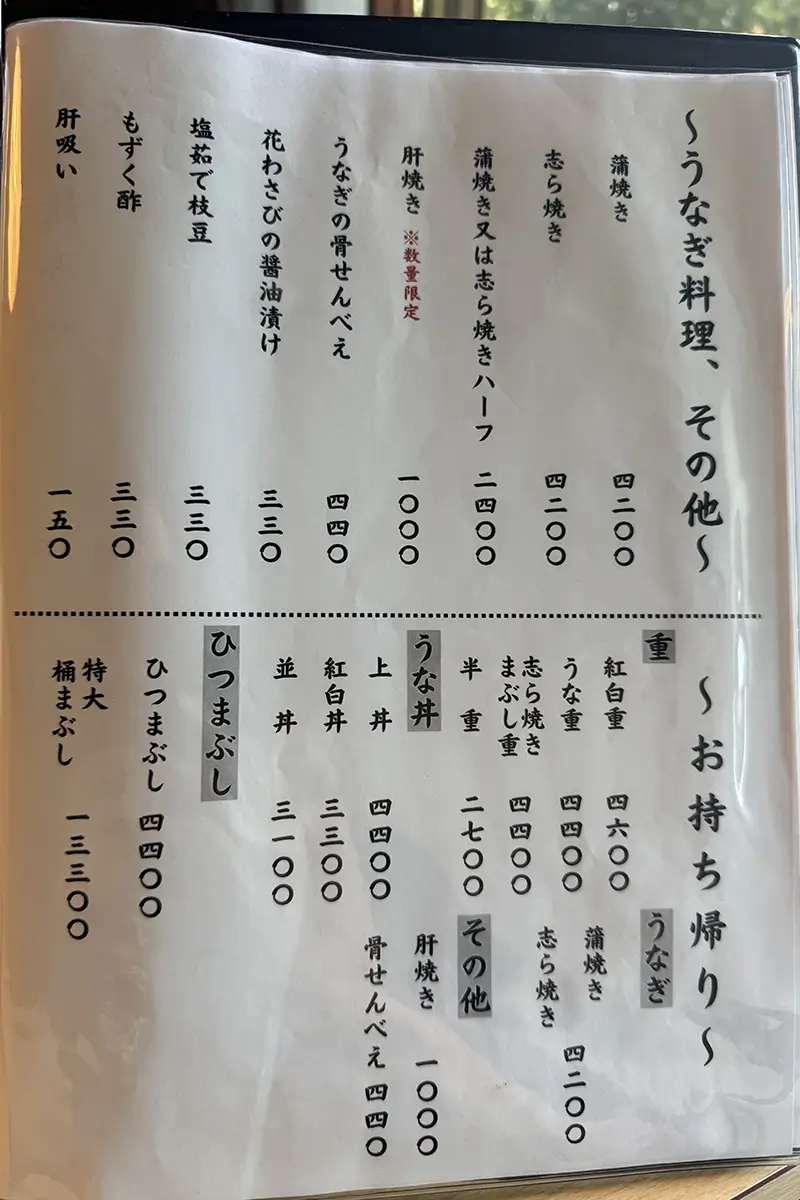 ～うなぎ料理、その他～
蒲焼き 四二〇〇
志ら焼き 四二〇〇
蒲焼き又は志ら焼きハーフ 二四〇〇
肝焼き ※数量限定 一〇〇〇
うなぎの骨せんべえ 四四〇
花わさびの醤油漬け 三三〇
塩茹で枝豆 三三〇
もずく酢 三三〇
肝吸い 一五〇
～お持ち帰り～
重
紅白重 四六〇〇
うな重 四四〇〇
志ら焼き
まぶし重 四四〇〇
半重 二七〇〇
うな丼
上丼 四四〇〇
紅白丼 三三〇〇
並丼 三一〇〇
ひつまぶし
ひつまぶし 四四〇〇
特大
桶まぶし 一三三〇〇
うなぎ
蒲焼き
志ら焼き 四二〇〇
その他
肝焼き 一〇〇〇
骨せんべえ 四四〇